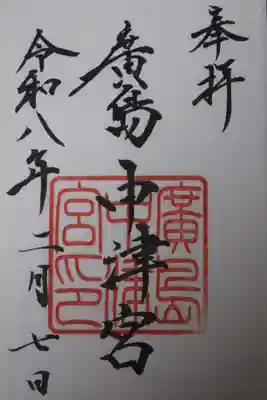 奉拝
廣島中津宮
廣島中津宮印
令和八年二月七日